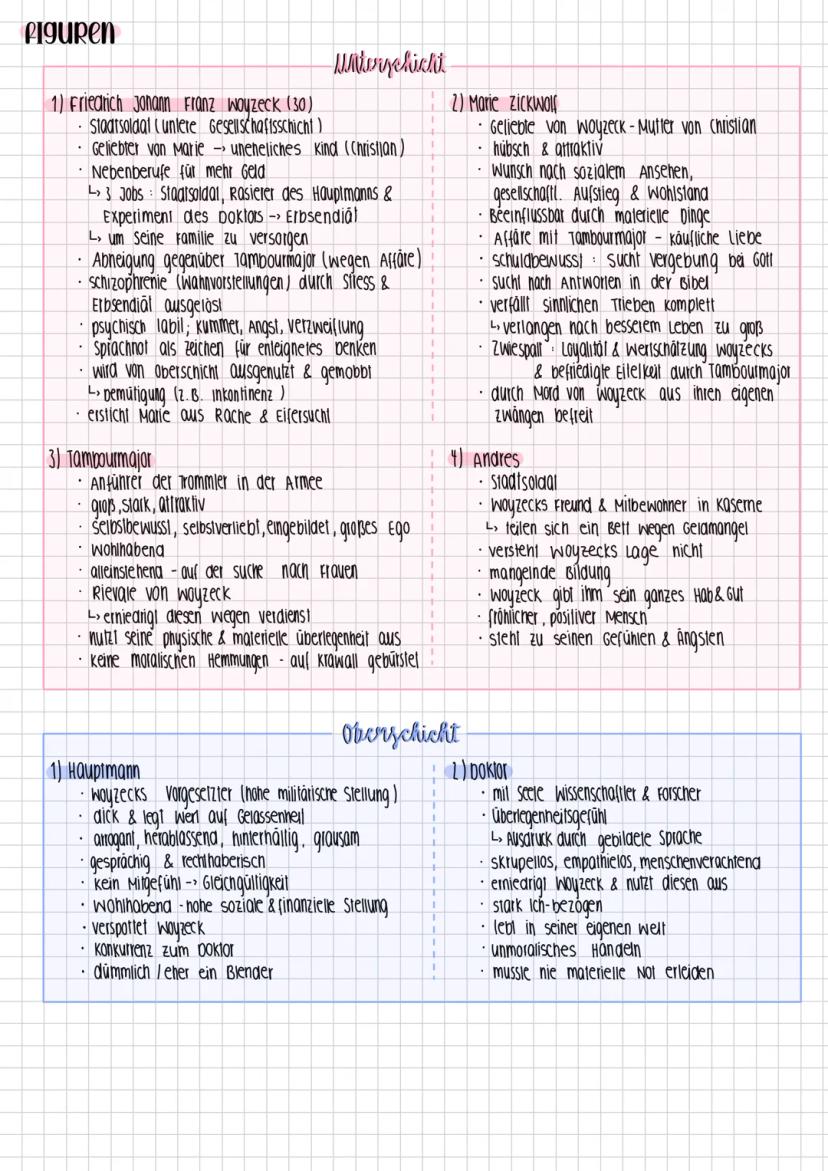 Figuren
Unterschicht
1) Friedrich Johann Franz Woyzeck (30)
· Stadtsoldat (untere Gesellschaftsschicht)
· Geliebter von Marie → uneheliches Kind (Christian)
· Nebenberufe für mehr Geld
↳ 3 Jobs : Stadtsoldat, Rasierer des Hauptmanns &
Experiment des Doktors → Erbsendiät
↳ um seine Familie zu versorgen
· Abneigung gegenüber Tambourmajor (wegen Affäre)
· schizophrenie (Wahnvorstellungen) durch Stress &
Erbsendiät ausgelöst
· psychisch labil; Kummer, Angst, Verzweiflung
· Sprachnot als zeichen für enteignetes Denken
· wird von Oberschicht ausgenutzt & gemobbt
↳ Demütigung (z.B. Inkontinenz)
· ersticht Marie aus Rache & Eifersucht
2) Marie Zickwolf
· Geliebte von Woyzeck - Mutter von Christian
· hübsch & attraktiv
· Wunsch nach sozialem Ansehen,
gesellschaftl. Aufstieg & Wohlstand
· Beeinflussbar durch materielle Dinge
· Affäre mit Tambourmajor - käufliche Liebe
· schuldbewusst : sucht Vergebung bei Gott
· sucht nach Antworten in der Bibel
· verfällt sinnlichen Trieben komplett
↳ verlangen nach besserem Leben zu groß
· Zwiespalt : Loyalität & Wertschätzung Woyzecks
& befriedigte Eitelkeit durch Tambourmajor
· durch Mord von Woyzeck aus ihren eigenen
zwängen befreit
3) Tambourmajor
· Anführer der Trommler in der Armee
· groß, stark, attraktiv
· selbstbewusst, selbstverliebt, eingebildet, großes Ego
· wohlhabend
· alleinstehend - auf der suche nach Frauen
· Rievale von Woyzeck
↳ erniedrigt diesen wegen verdienst
· nutzt seine physische & materielle überlegenheit aus
· keine moralischen Hemmungen - auf Krawall gebürstet
4) Andres
· Stadtsoldat
· Woyzecks Freund & Mitbewohner in Kaserne
↳ teilen sich ein Bett wegen Geldmangel
· versteht Woyzecks Lage nicht
· mangelnde Bildung
· Woyzeck gibt ihm sein ganzes Hab & Gut
· fröhlicher, positiver Mensch
· steht zu seinen Gefühlen & Ängsten
Oberschicht
1) Hauptmann
· Woyzecks Vorgesetzter (hohe militärische Stellung)
· dick & legt Wert auf Gelassenheit
· arrogant, herablassend, hinterhältig, grausam
· gesprächig & rechthaberisch
· kein Mitgefühl -> Gleichgültigkeit
· Wohlhabend - hohe soziale & finanzielle Stellung
· verspottet Woyzeck
· Konkurrenz zum Doktor
· dümmlich / eher ein Blender
2) Doktor
· mit Seele Wissenschaftler & Forscher
· überlegenheitsgefühl
↳ Ausdruck durch gebildete Sprache
· skrupellos, empathielos, menschenverachtend
· erniedrigt Woyzeck & nutzt diesen aus
· stark Ich-bezogen
· lebt in seiner eigenen welt
· unmoralisches Handeln
· musste nie materielle Not erleiden